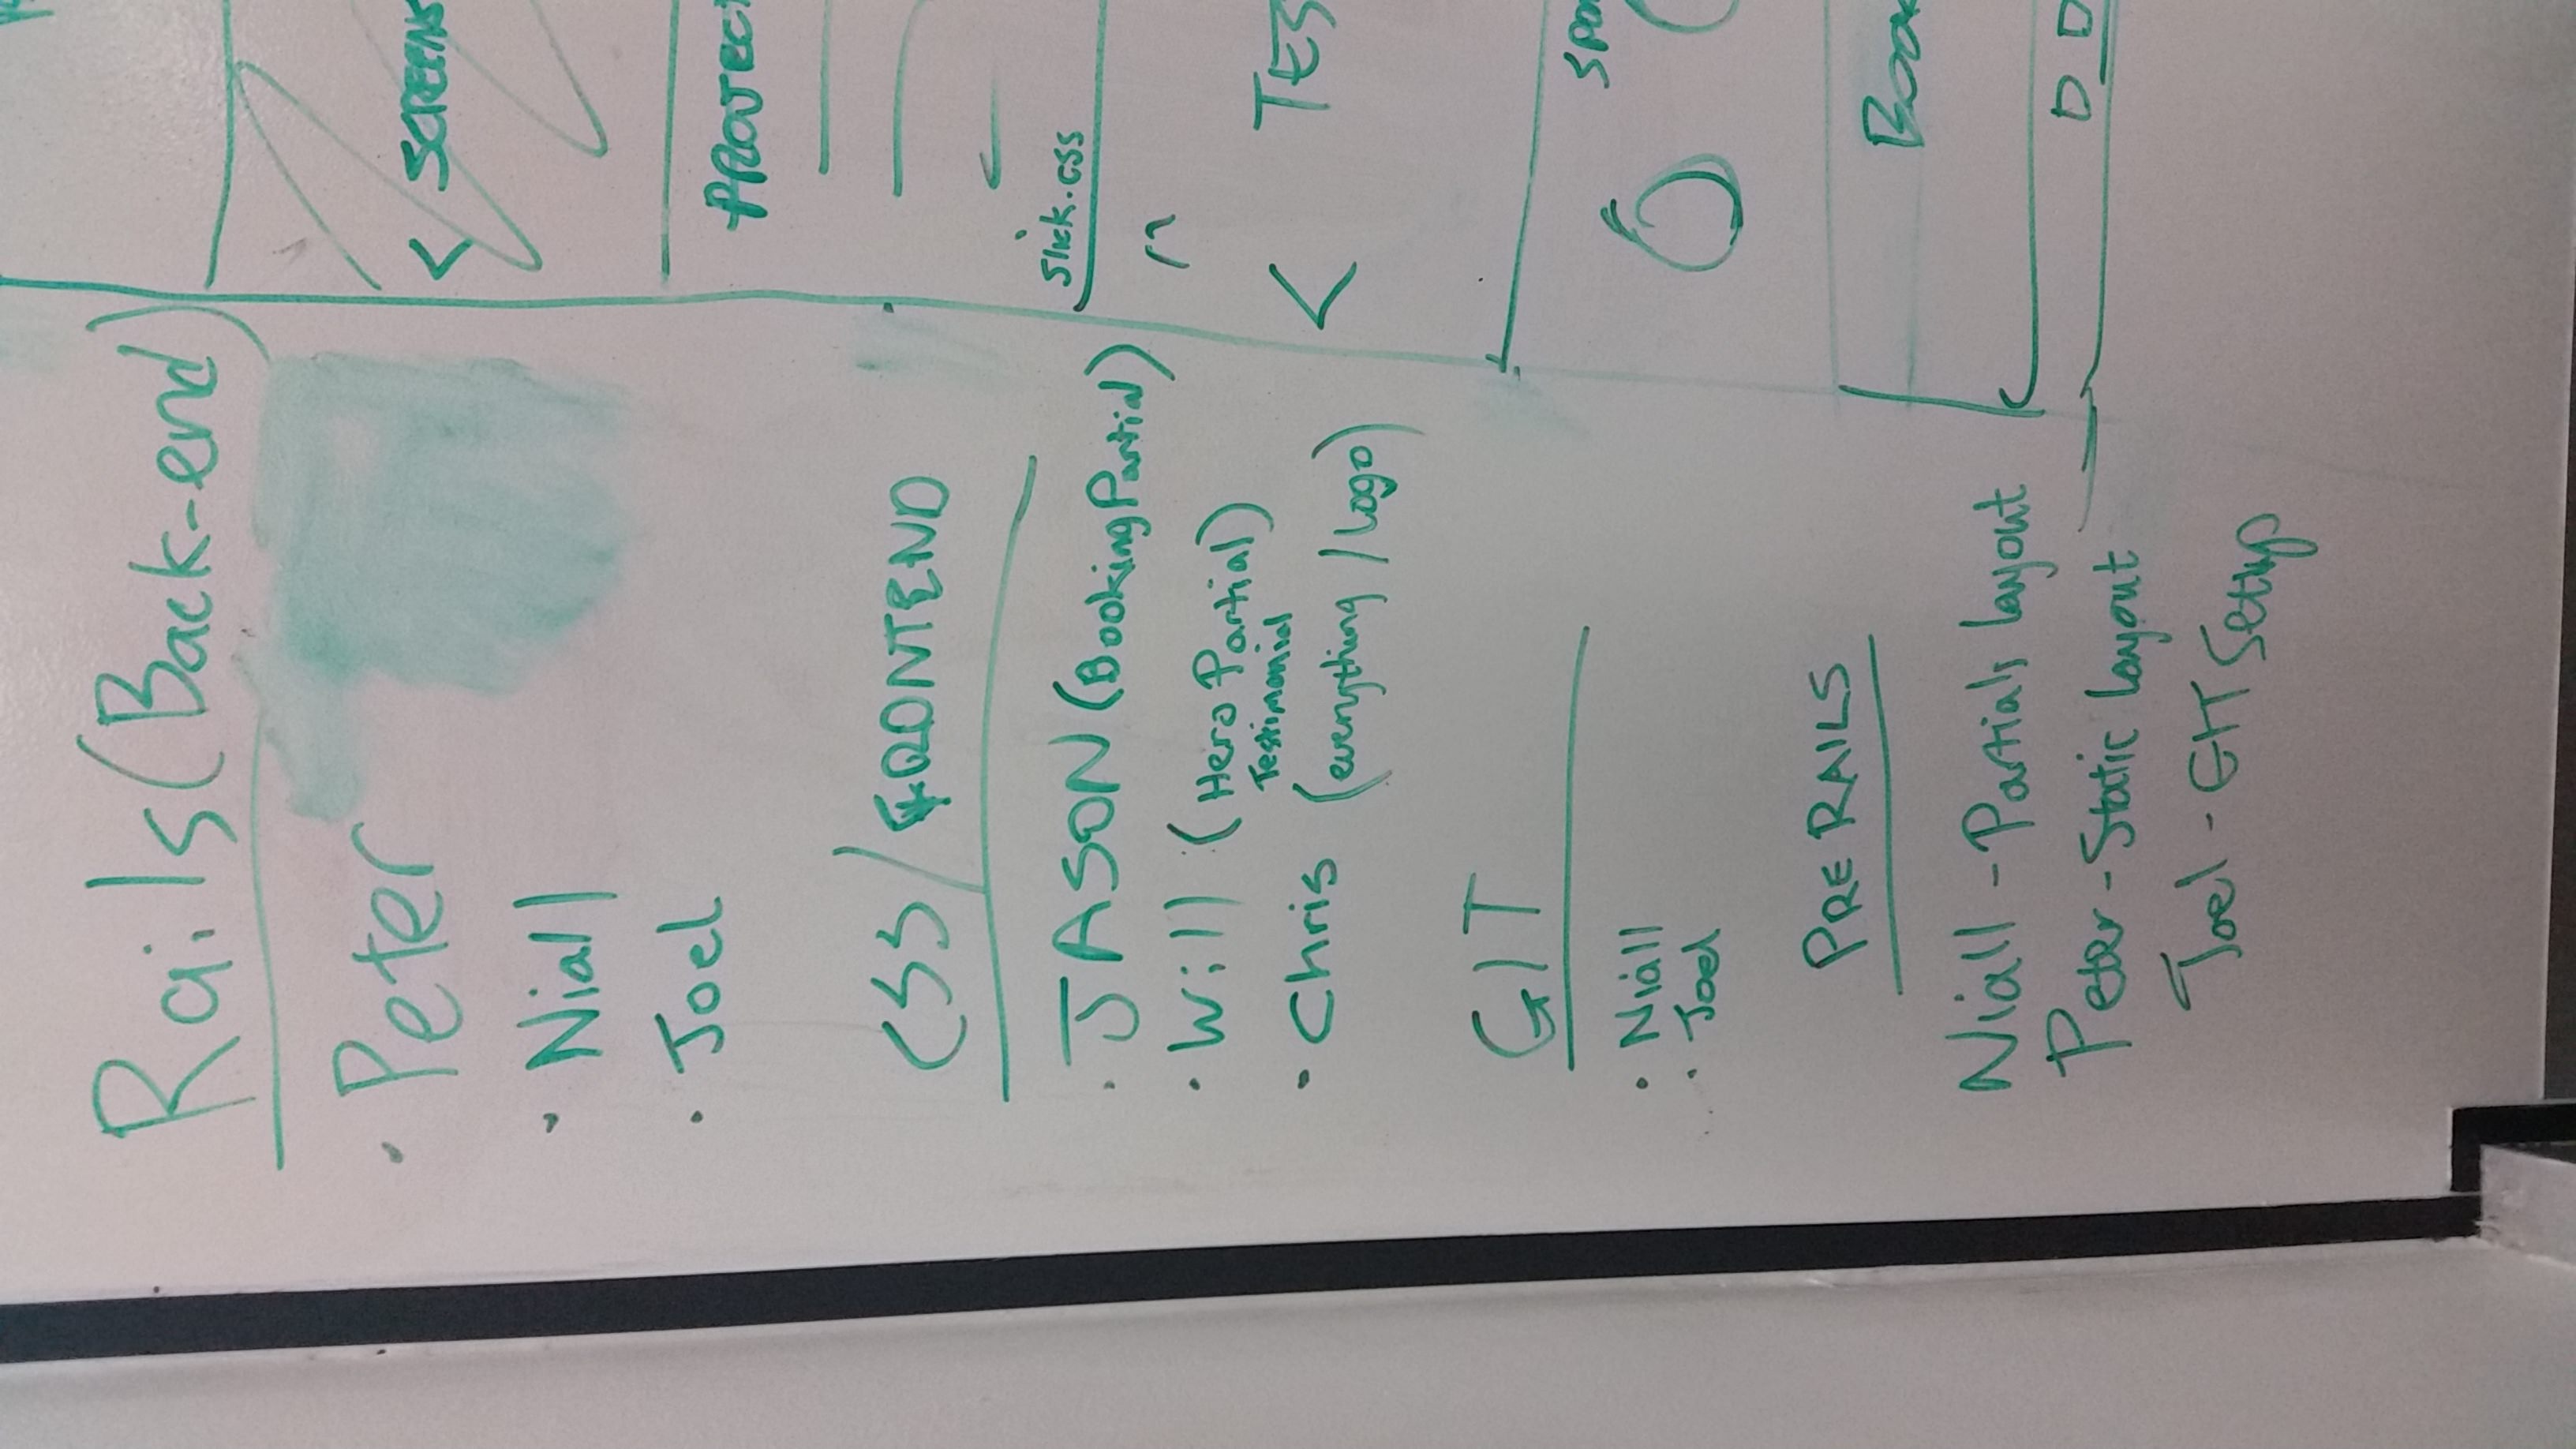 Rails (Back-end)
· Peter
· Niall
· Joel
CSS / FRONTEND
· JASON (Booking Partial)
· Will (Hero Partial)
Testimonial
· Chris (everything / Logo)
GIT
· Niall
· Joel
PRE RAILS
Niall - Partials layout
Peter - Static layout
Joel - GIT Setup
< SCREENS
PROJECT
slick.css
< TES
SPO
BOO